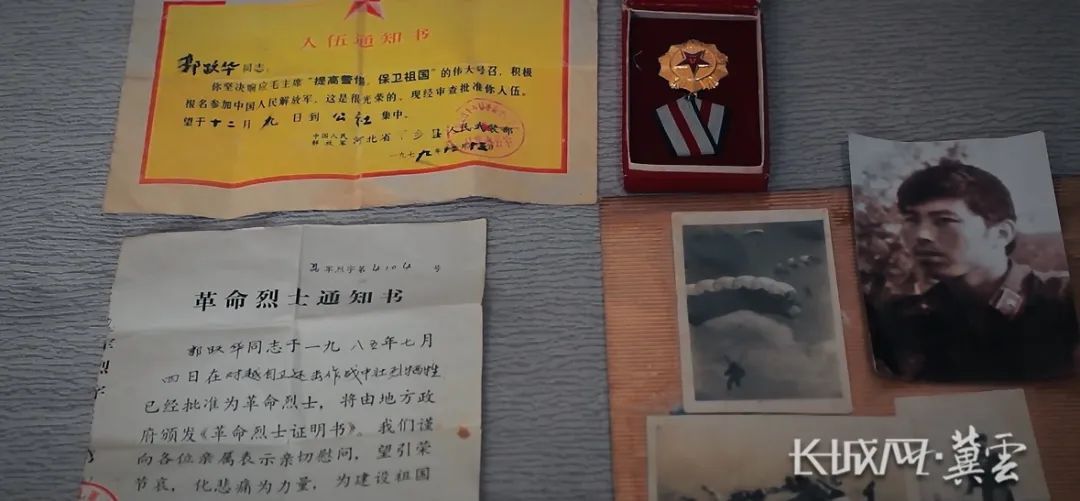 入伍通知书
郭跃华同志:
你坚决响应毛主席“提高警惕,保卫祖国”的伟大号召,积极
报名参加中国人民解放军,这是很光荣的,现经审查批准你入伍。
望于十二月九日到公社集中。
中国人民
解放军
河北省 县人民武装部
一九七九年十二月 日
革命烈士通知书
军烈字第4104号
郭跃华同志于一九八五年七月
四日在对越自卫还击作战中壮烈牺牲
已经批准为革命烈士,将由地方政
府颁发《革命烈士证明书》。我们谨
向各位亲属表示亲切慰问,望引荣
节哀,化悲痛为力量,为建设祖国
军烈字
长城网·冀雲